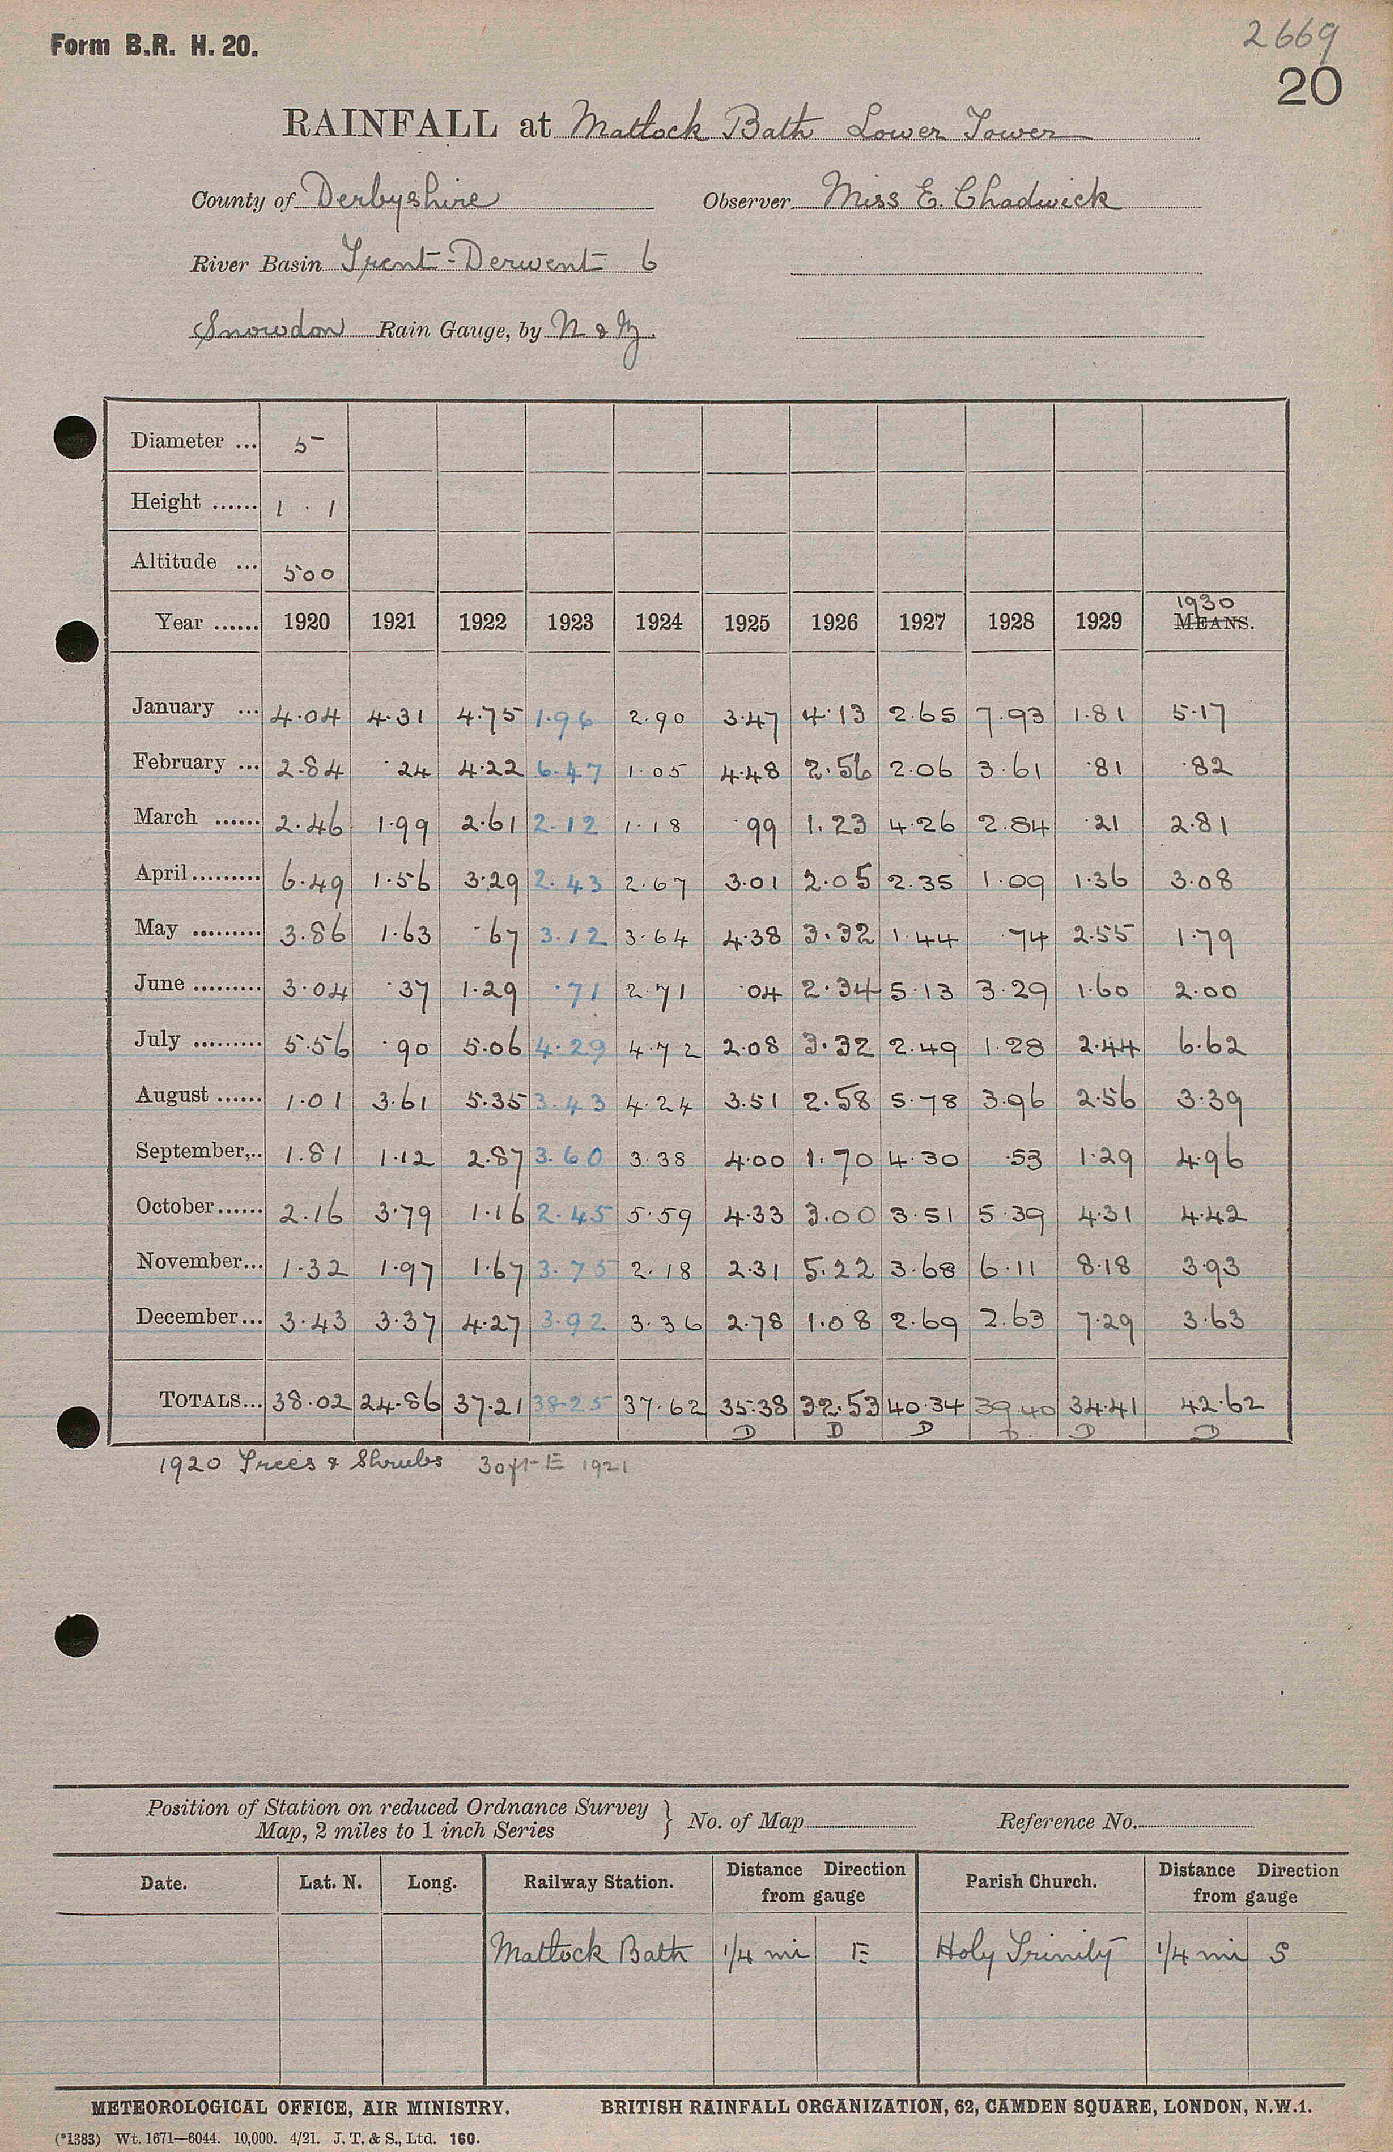 Form B.R. H. 20.
2669
20
RAINFALL at Matlock Bath Lower Tower
County of Derbyshire Observer Miss E. Chadwick
River Basin Trent-Derwent 6
Snowdon Rain Gauge, by N & Z.
Diameter ... 5
Height ...... 1 . 1
Altitude ... 500
1930
Year ...... 1920 1921 1922 1923 1924 1925 1926 1927 1928 1929 MEANS.
January ... 4.04 4.31 4.75 1.96 2.90 3.47 4.13 2.65 7.93 1.81 5.17
February ... 2.84 .24 4.22 6.47 1.05 4.48 2.56 2.06 3.61 .81 .82
March ...... 2.46 1.99 2.61 2.12 1.18 .99 1.23 4.26 2.84 .21 2.81
April ......... 6.49 1.56 3.29 2.43 2.67 3.01 2.05 2.35 1.09 1.36 3.08
May ......... 3.86 1.63 .67 3.12 3.64 4.38 3.32 1.44 .74 2.55 1.79
June ......... 3.04 .37 1.29 .71 2.71 .04 2.34 5.13 3.29 1.60 2.00
July ......... 5.56 .90 5.06 4.29 4.72 2.08 3.32 2.49 1.28 2.44 6.62
August ...... 1.01 3.61 5.35 3.43 4.24 3.51 2.58 5.78 3.96 2.56 3.39
September,.. 1.81 1.12 2.87 3.60 3.38 4.00 1.70 4.30 .53 1.29 4.96
October ...... 2.16 3.79 1.16 2.45 5.59 4.33 3.00 3.51 5.39 4.31 4.42
November ... 1.32 1.97 1.67 3.75 2.18 2.31 5.22 3.68 6.11 8.18 3.93
December ... 3.43 3.37 4.27 3.92 3.36 2.78 1.08 2.69 2.63 7.29 3.63
TOTALS ... 38.02 24.86 37.21 38.25 37.62 35.38 32.53 40.34 39.40 34.41 42.62
D D D D D D
1920 Trees & Shrubs 30ft E 1921
Position of Station on reduced Ordnance Survey
Map, 2 miles to 1 inch Series } No. of Map Reference No.
Date. Lat. N. Long. Railway Station. Distance Direction from gauge Parish Church. Distance Direction from gauge
Matlock Bath 1/4 mi E Holy Trinity 1/4 mi S
METEOROLOGICAL OFFICE, AIR MINISTRY. BRITISH RAINFALL ORGANIZATION, 62, CAMDEN SQUARE, LONDON, N.W.1.
(*1383) Wt. 1671—6044. 10,000. 4/21. J. T. & S., Ltd. 160.